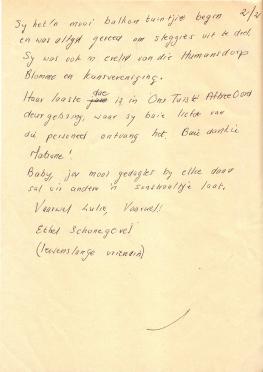 2/2
Sy het 'n mooi balkon tuintjie begin
en was altyd gereed om steggies uit te deel
Sy was ook 'n erelid van die Humansdorp
Blomme en Kunsvereniging.
Haar laaste dae is in Ons Tuiste Aftree Oord
deurgebring, waar sy baie liefde van
die personeel ontvang het. Baie dankie
Matrone!
Baby, jou mooi gedagtes by elke
sal vir andere 'n sonstraaltjie laat.
Vaarwel Lulie, Vaarwel!
Ethel Schonegevel
(lewenslange vriendin)